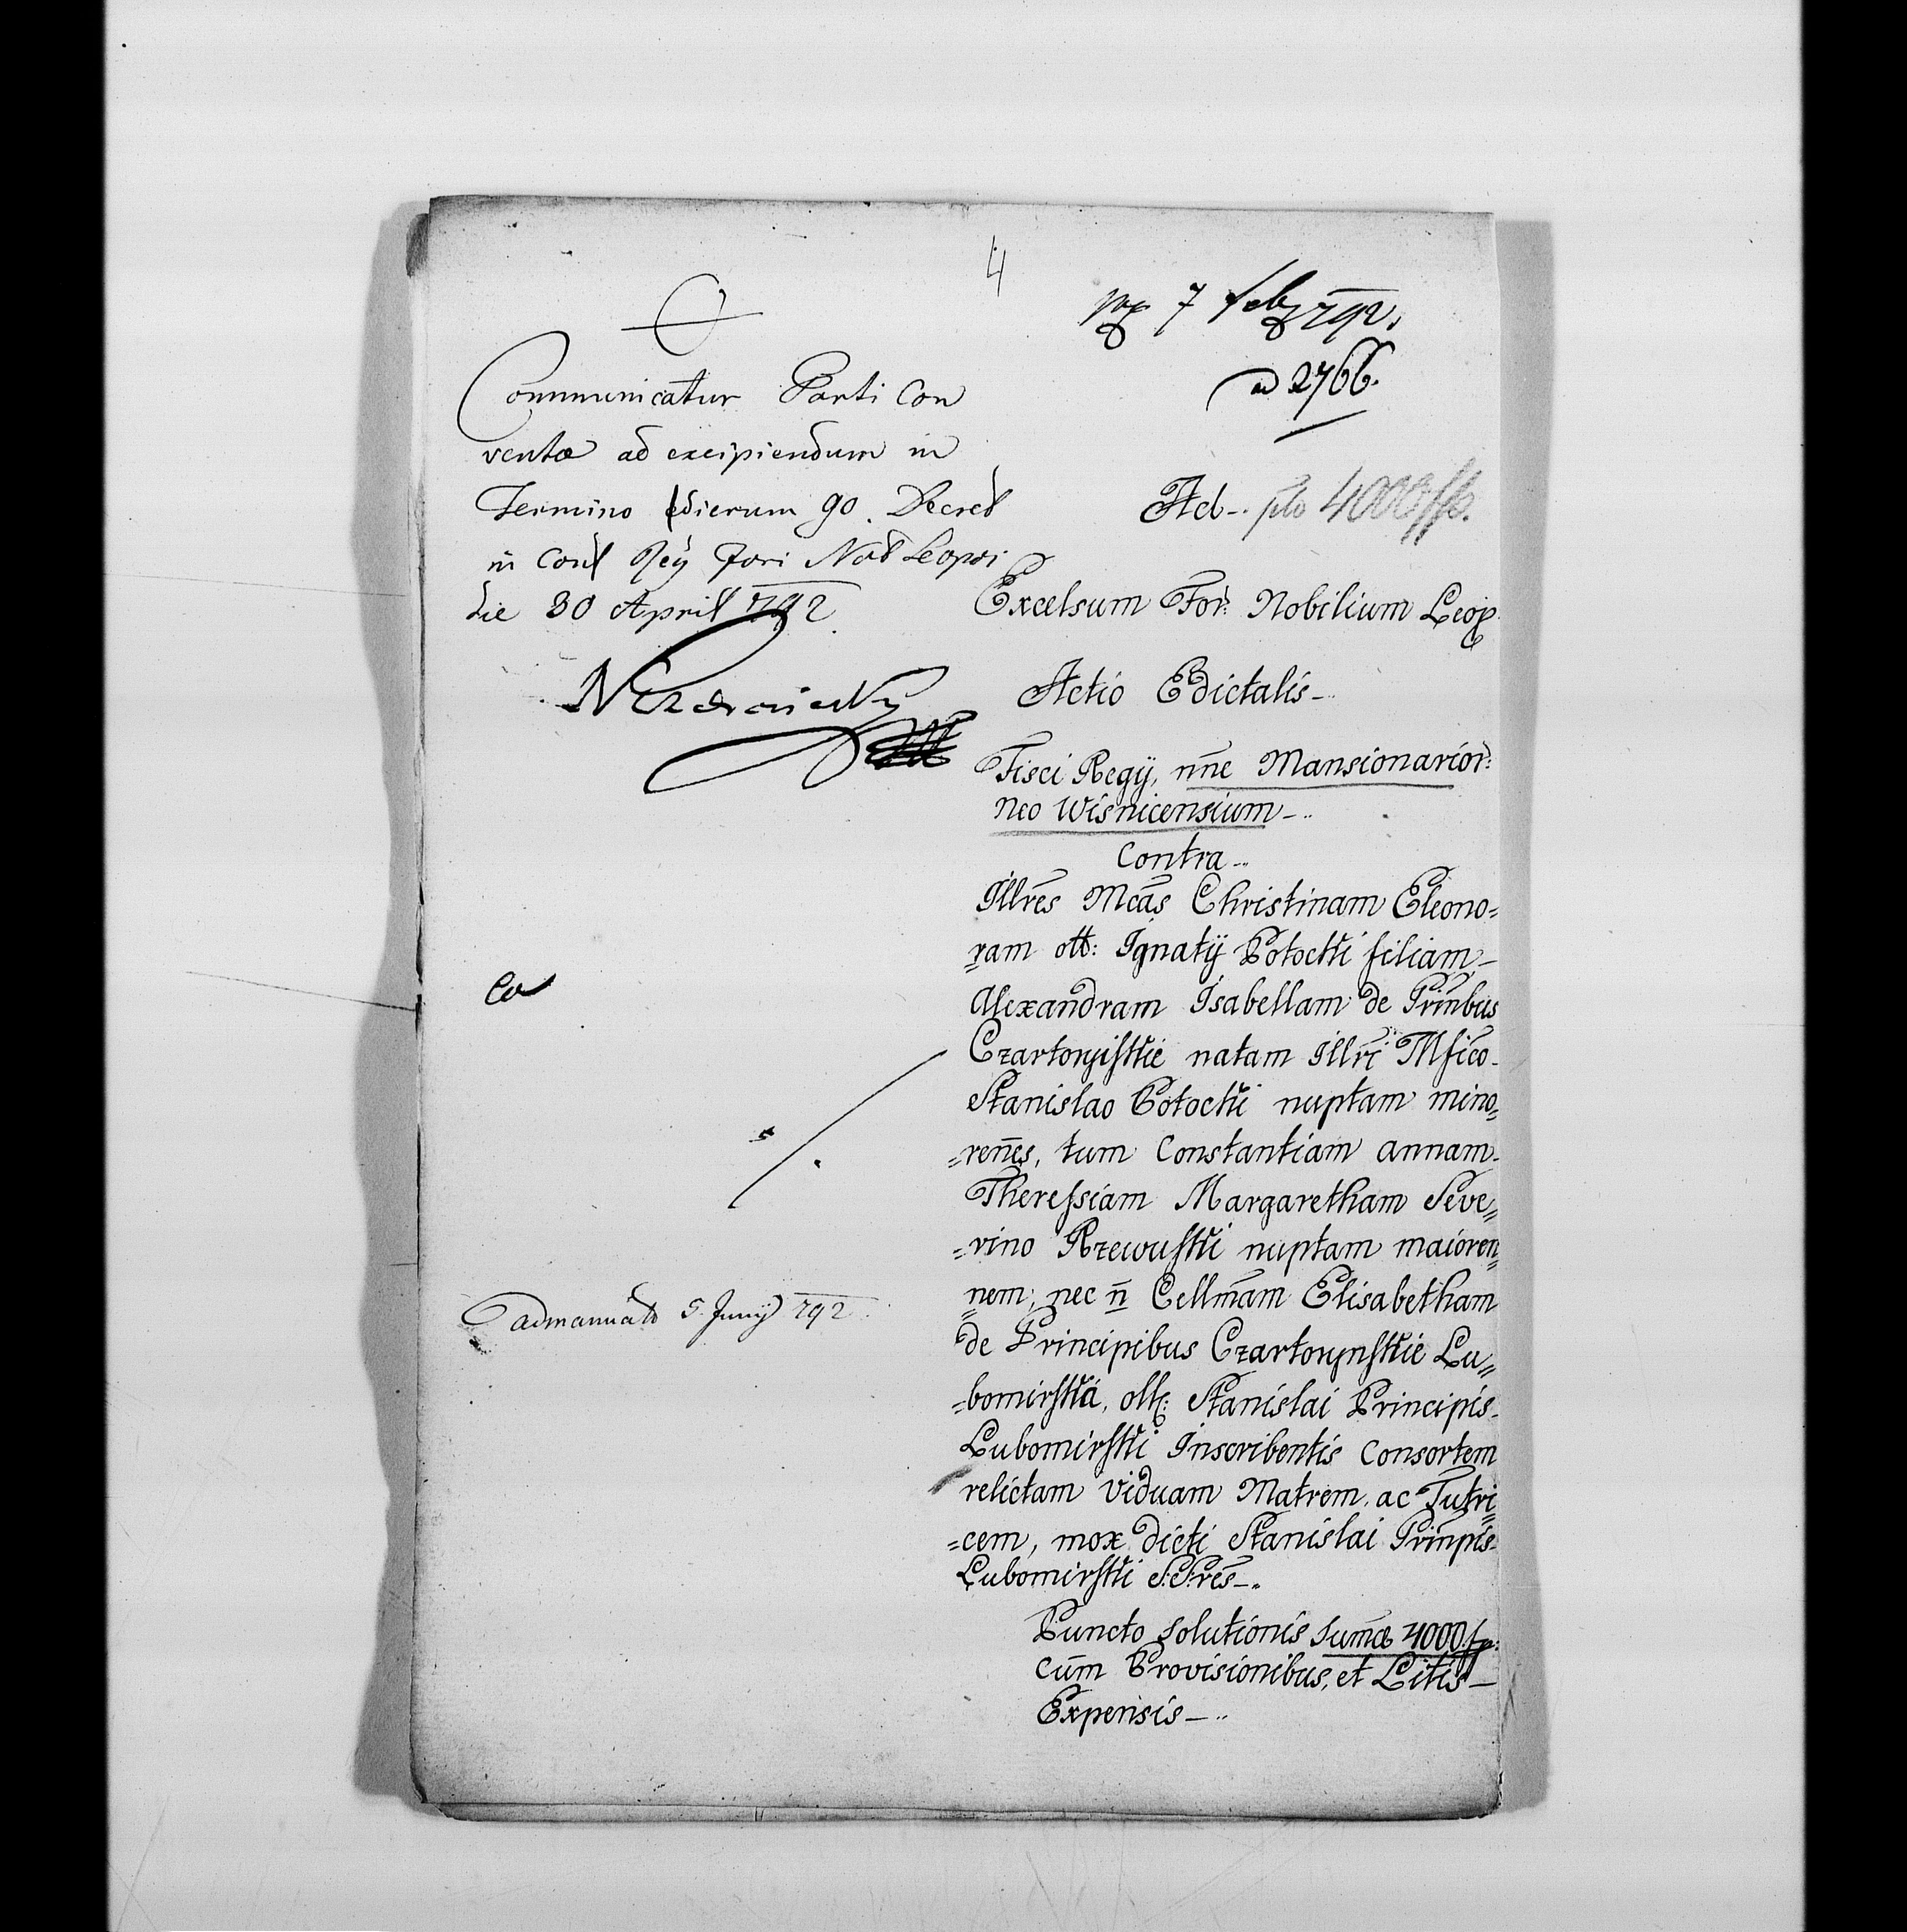 4
7 feb 792.
ad 2766.
Communicatur Parti Con
ventæ ad excipiendum in
Termino dierum 90. Decret
in Cons Regÿ Fori Nob Leopoi
die 30 April 792
Act-. pto 4000 fp.
Excelsum For: Nobilium Leop.
Actio Edictalis-
Fisci Regÿ, nne Mansionarior:
neo Wisnicensium-..
Contra-..
Illres Mcas Christinam Eleono=
ram olt: Ignatÿ Potocki filiam-
Alexandram Isabellam de Prinbus
Czartoryiskie natam Illri Mfico-
Stanislao Potocki nuptam mino=
=rennes, tum Constantiam annam-
Theressiam Margaretham Seve=
=rino Rzewuski nuptam maioren
=nem; nec n Cellmam Elisabetham
de Principibus Czartorynskie Lu=
=bomirska, olt: Stanislai Principis-
Lubomirski Inscribentis Consortem
relictam Viduam Matrem, ac Tutri
=cem, mox dicti Stanislai Prinpis-
Lubomirski S:S:res-..
Puncto solutionis Sumæ 4000 fp:
cum Provisionibus, et Litis-
Expensis-..
Co
admanuat 5. Junÿ 792.